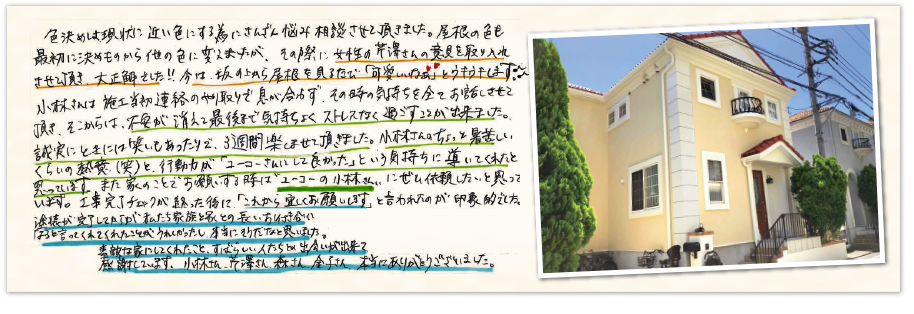 色決めは現状に近い色にする為にさんざん悩み相談させて頂きました。屋根の色も
最初に決めたものから他の色に変えましたが、その際に女性の芹澤さんの意見を取り入れ
させて頂き、大正解でした!! 今は、坂の上から屋根を見るたび「可愛いなぁ」とうきうきします
小林さんは施工当初連絡のやり取りで息が合わず、その時の気持ちを全てお話しさせて
頂き、そこからは、不安が消えて最後まで気持ちよくストレスなく過ごすことが出来ました。
誠実にときには笑いもあったりで、3週間楽しませて頂きました。小林さんのちょっと暑苦しい
くらいの熱意(笑)と、行動力が「ユーコーさんにして良かった」という気持ちに導いてくれたと
思っています。また家のことでお願いする時は「ユーコーの小林さん」にぜひ依頼したいと思って
います。工事完了チェックが終った後に、「これから宜しくお願いします」と言われたのが印象的でした。
塗装が完了してからが私たち家族と家との長いお付き合いに
なると言ってくれてくれたことがうれしかったし、本当にそうだなと思いました。
素敵な家にしてくれたこと、すばらしい人たちとの出会いが出来て
感謝しています。小林さん、芹澤さん、森さん、金子さん、本当にありがとうございました。